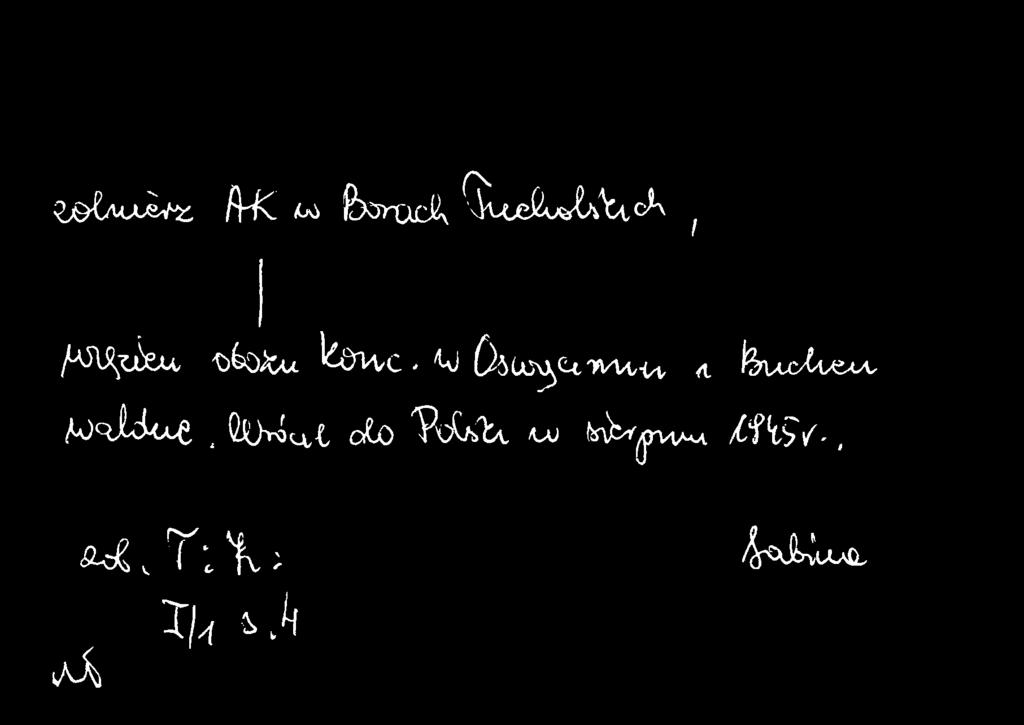 żołnierz AK w Borach Tucholskich,
więzień obozu konc. w Oswięcimiu i Buchen
waldue. Wrócił do Polski w sierpniu 1945 r.,
zob. T: K:
Sabina
I/1 s.4